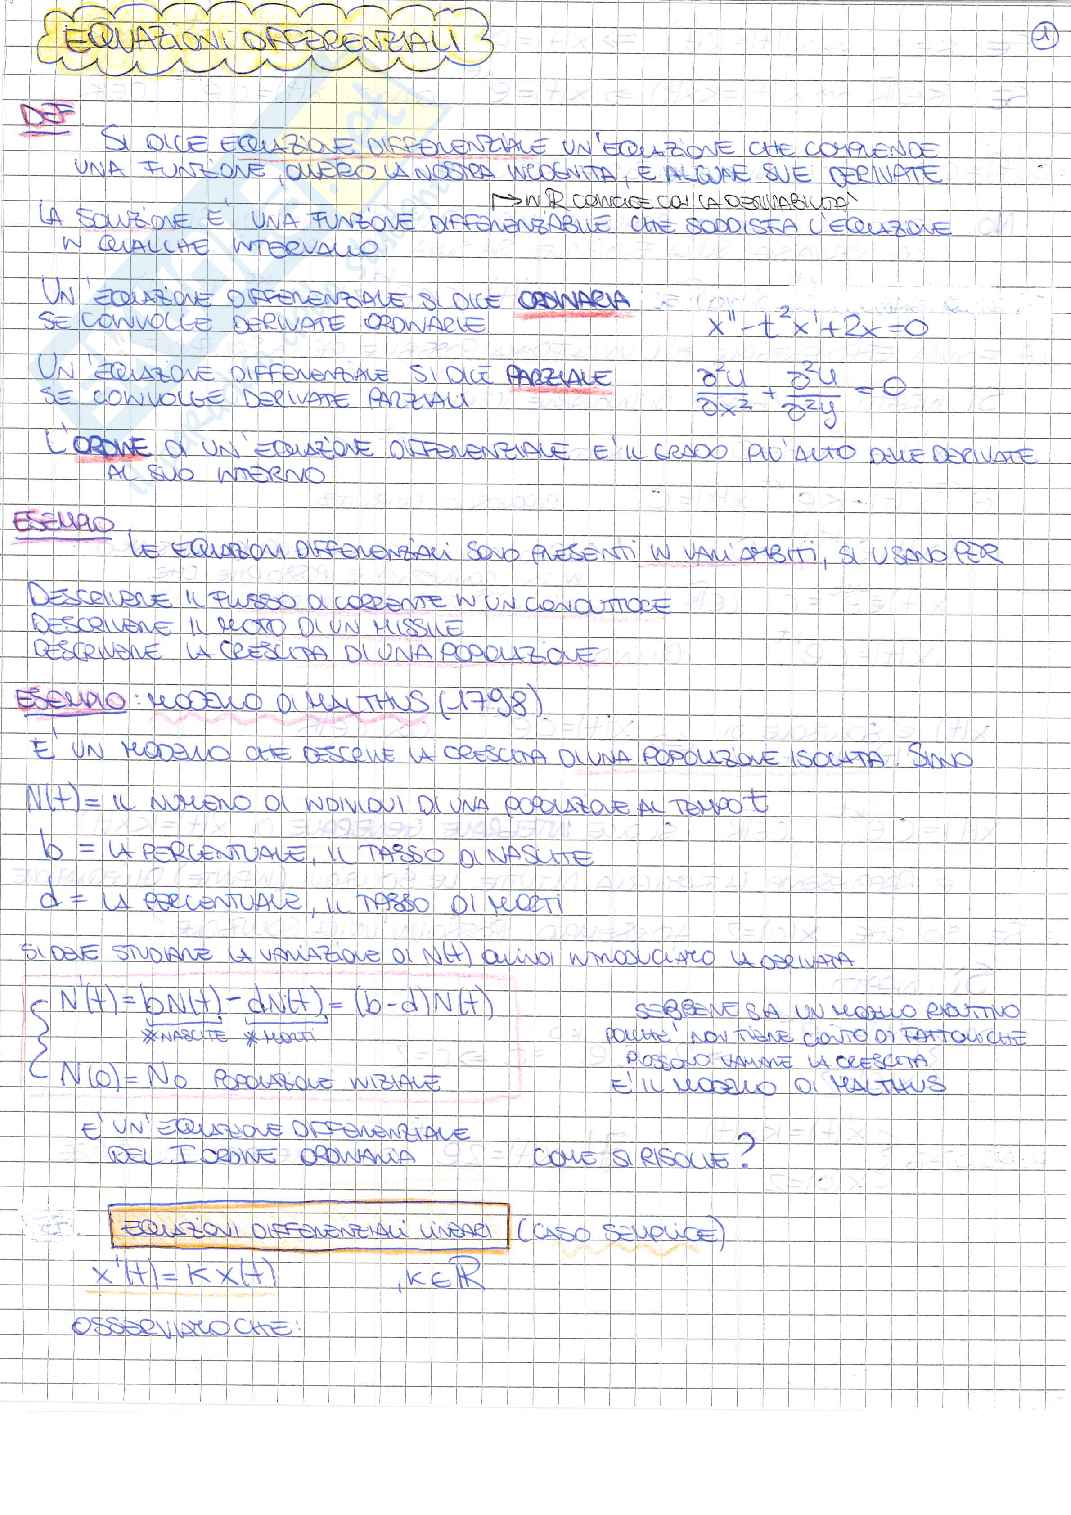 EQUAZIONI DIFFERENZIALI
1
DEF
SI DICE EQUAZIONE DIFFERENZIALE UN'EQUAZIONE CHE COMPRENDE
UNA FUNZIONE, OVVERO LA NOSTRA INCOGNITA, E ALCUNE SUE DERIVATE
→ IN ℝ COINCIDE CON LA DERIVABILITÀ
LA SOLUZIONE E' UNA FUNZIONE DIFFERENZIABILE CHE SODDISFA L'EQUAZIONE
IN QUALCHE INTERVALLO
UN'EQUAZIONE DIFFERENZIALE SI DICE ORDINARIA
SE COINVOLGE DERIVATE ORDINARIE x'' - t²x' + 2x = 0
UN'EQUAZIONE DIFFERENZIALE SI DICE PARZIALE
SE COINVOLGE DERIVATE PARZIALI ∂²U/∂x² + ∂²U/∂²y = 0
L'ORDINE DI UN'EQUAZIONE DIFFERENZIALE E' IL GRADO PIU' ALTO DELLE DERIVATE
AL SUO INTERNO
ESEMPIO
LE EQUAZIONI DIFFERENZIALI SONO PRESENTI IN VARI AMBITI, SI USANO PER
DESCRIVERE IL FLUSSO DI CORRENTE IN UN CONDUTTORE
DESCRIVERE IL MOTO DI UN MISSILE
DESCRIVERE LA CRESCITA DI UNA POPOLAZIONE
ESEMPIO: MODELLO DI MALTHUS (1798)
E' UN MODELLO CHE DESCRIVE LA CRESCITA DI UNA POPOLAZIONE ISOLATA. SIANO
N(t) = IL NUMERO DI INDIVIDUI DI UNA POPOLAZIONE AL TEMPO t
b = LA PERCENTUALE, IL TASSO DI NASCITE
d = LA PERCENTUALE, IL TASSO DI MORTI
SI DEVE STUDIARE LA VARIAZIONE DI N(t) QUINDI INTRODUCIAMO LA DERIVATA
N'(t) = bN(t) - dN(t) = (b-d)N(t)
*NASCITE *MORTI
N(0) = N₀ POPOLAZIONE INIZIALE
SEBBENE SIA UN MODELLO RIDUTTIVO
POICHE' NON TIENE CONTO DI FATTORI CHE
POSSONO VARIARE LA CRESCITA
E' IL MODELLO DI MALTHUS
E' UN'EQUAZIONE DIFFERENZIALE
DEL I ORDINE ORDINARIA COME SI RISOLVE?
EQUAZIONI DIFFERENZIALI LINEARI (CASO SEMPLICE)
x'(t) = K x(t) , K ∈ ℝ
OSSERVIAMO CHE: